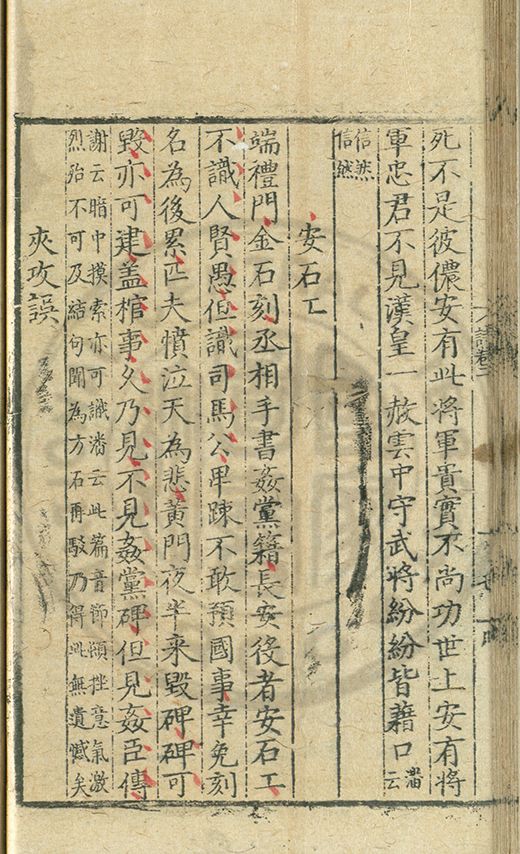 死不是彼儂安有此將軍貴實不尚功世上安有將
軍忠君不見漢皇一赦雲中守武將紛紛皆藉口潘云
信然
信然
安石工
端禮門金石刻丞相手書姦黨籍長安役者安石工
不識人賢愚但識司馬公卑踈不敢預國事幸免刻
名為後累匹夫憤泣天為悲黄門夜半来毀碑碑可
毀亦可建盖棺事乆乃見不見姦黨碑但見姦臣傳
謝云暗中摸索亦可識潘云此篇音節頓挫意氣激
烈殆不可及結句聞為方石再駁乃得此無遺憾矣
夾攻誤